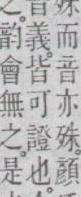 殊而音亦殊。顏
音義。皆可證也。
之。韻會無之。是